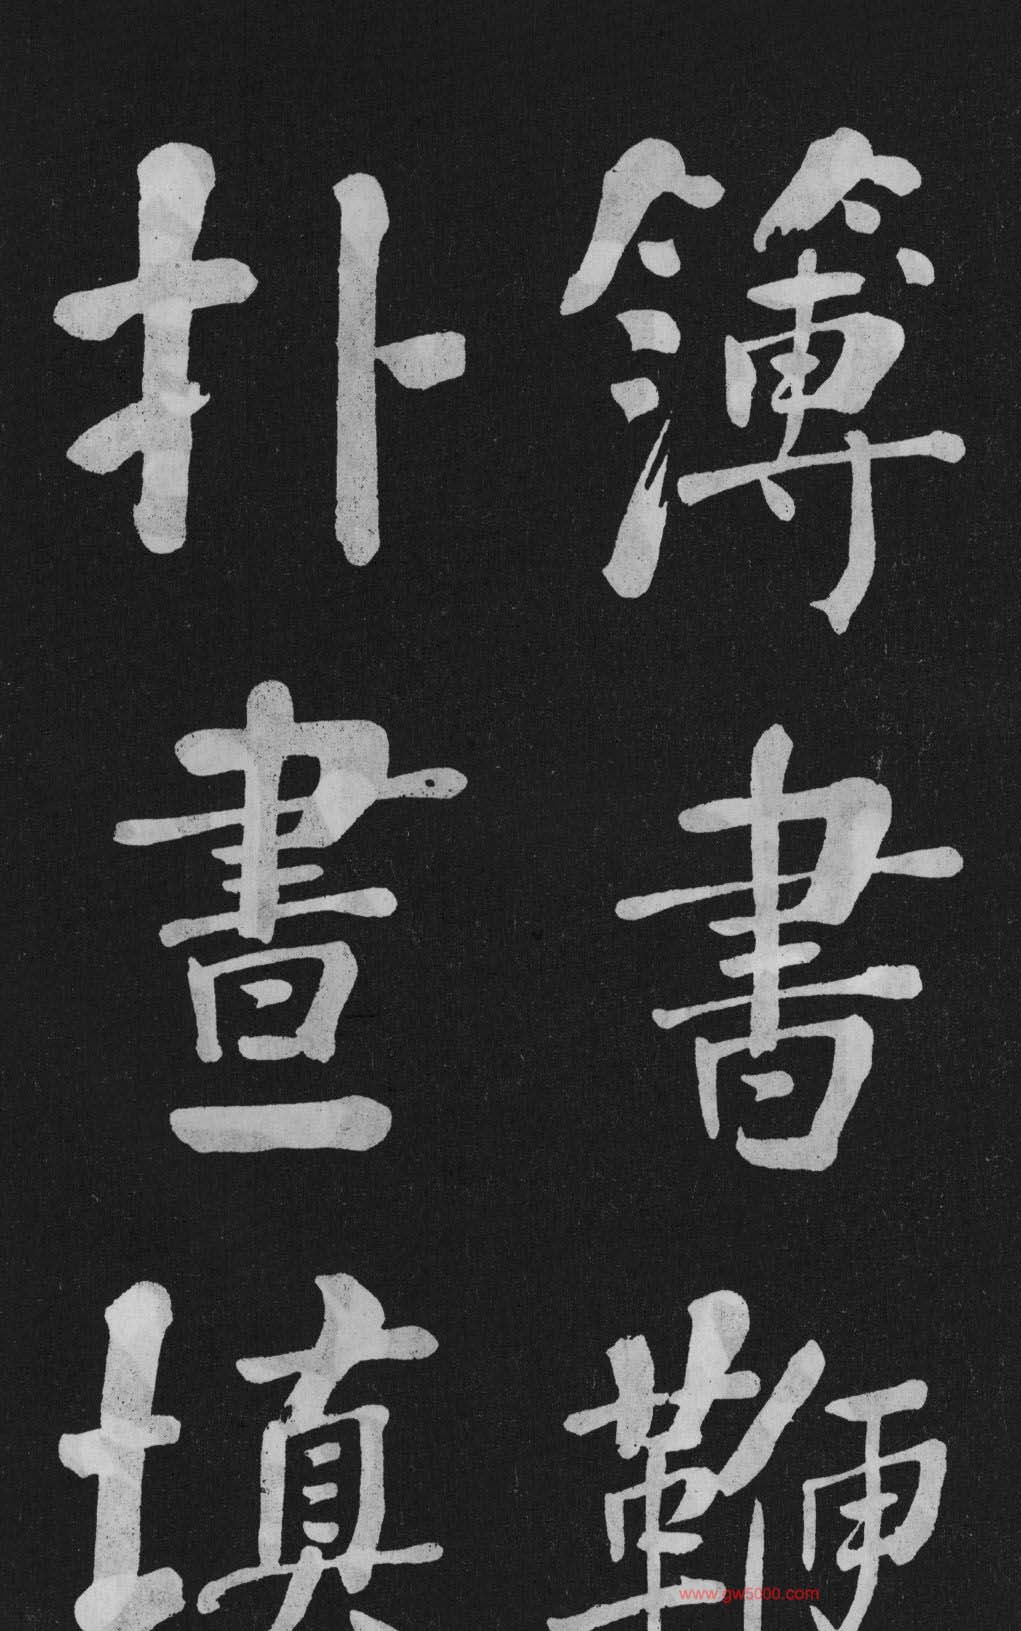 簿書鞭
扑晝填
www.gw5000.com